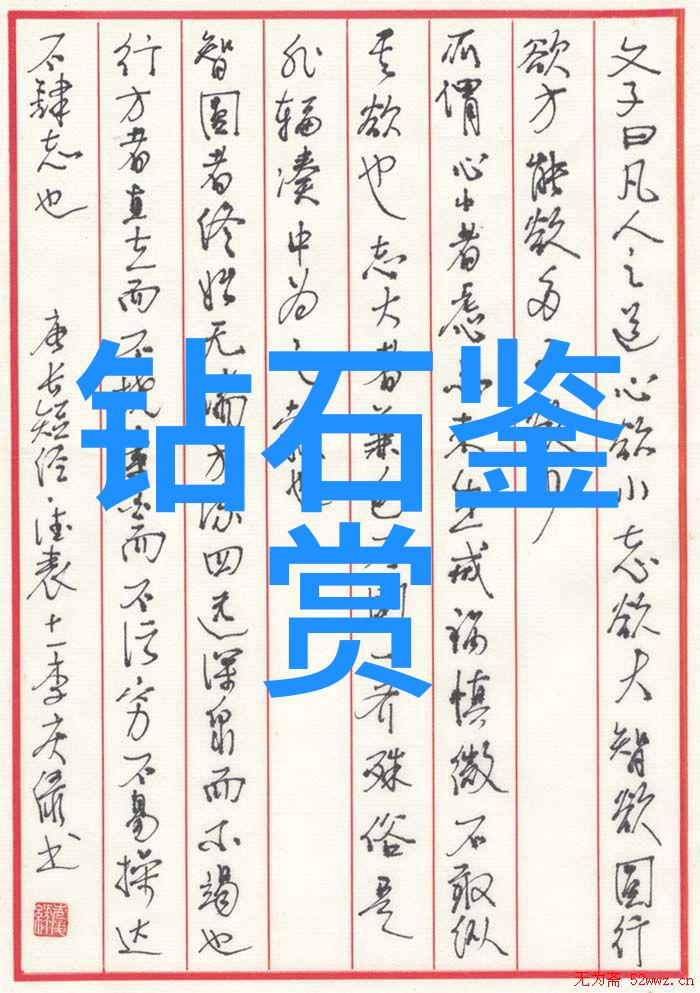 文子曰凡人之道心欲小志欲大智欲圆行
欲方能欲多
所谓心小者虑患未生戒祸慎微不敢纵
其欲也志大者兼包 一齐殊俗是
非辐凑中为之 也
智圆者终始无端方流四远深泉而不竭也
行方者直立而不挠 而不污穷不易操达
不肆志也
唐长短经·德表十一季庆 书
钻石鉴
赏
无为斋 52wwz.cn